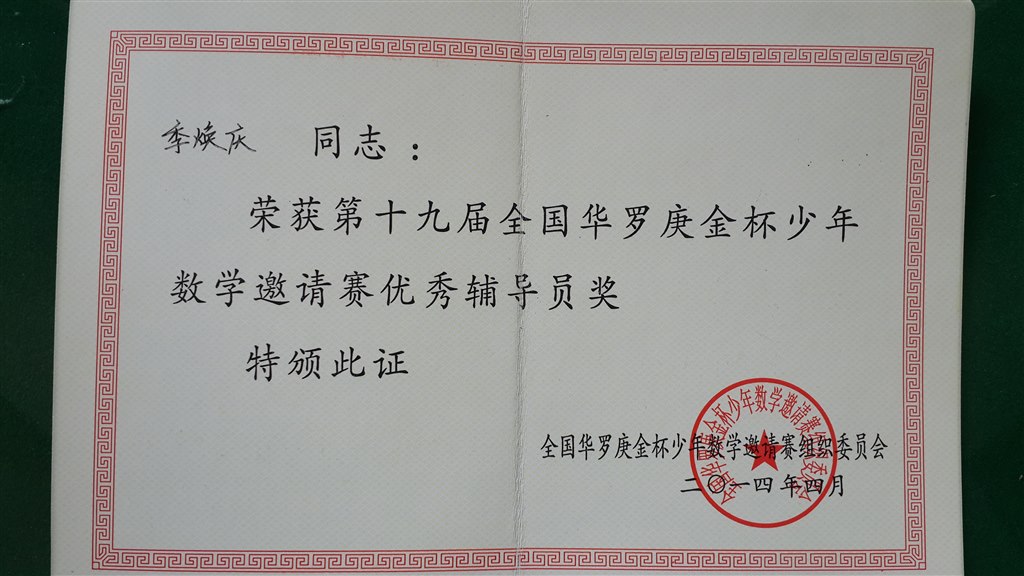 季焕庆 同志：
荣获第十九届全国华罗庚金杯少年
数学邀请赛优秀辅导员奖
特颁此证
全国华罗庚金杯少年数学邀请赛组织委员会
二〇一四年四月
全国华罗庚金杯少年数学邀请赛组织委员会